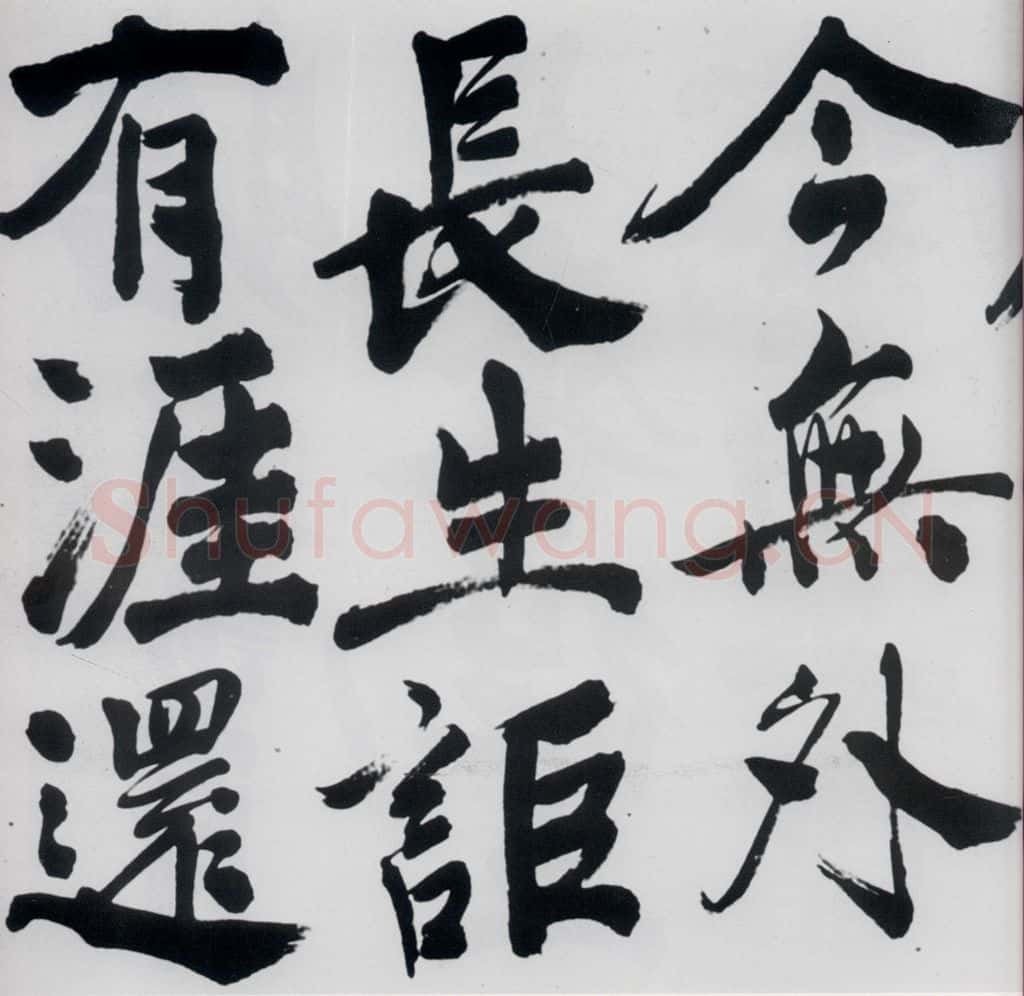 今無外
長生詎
有涯還
Shufawang.CN